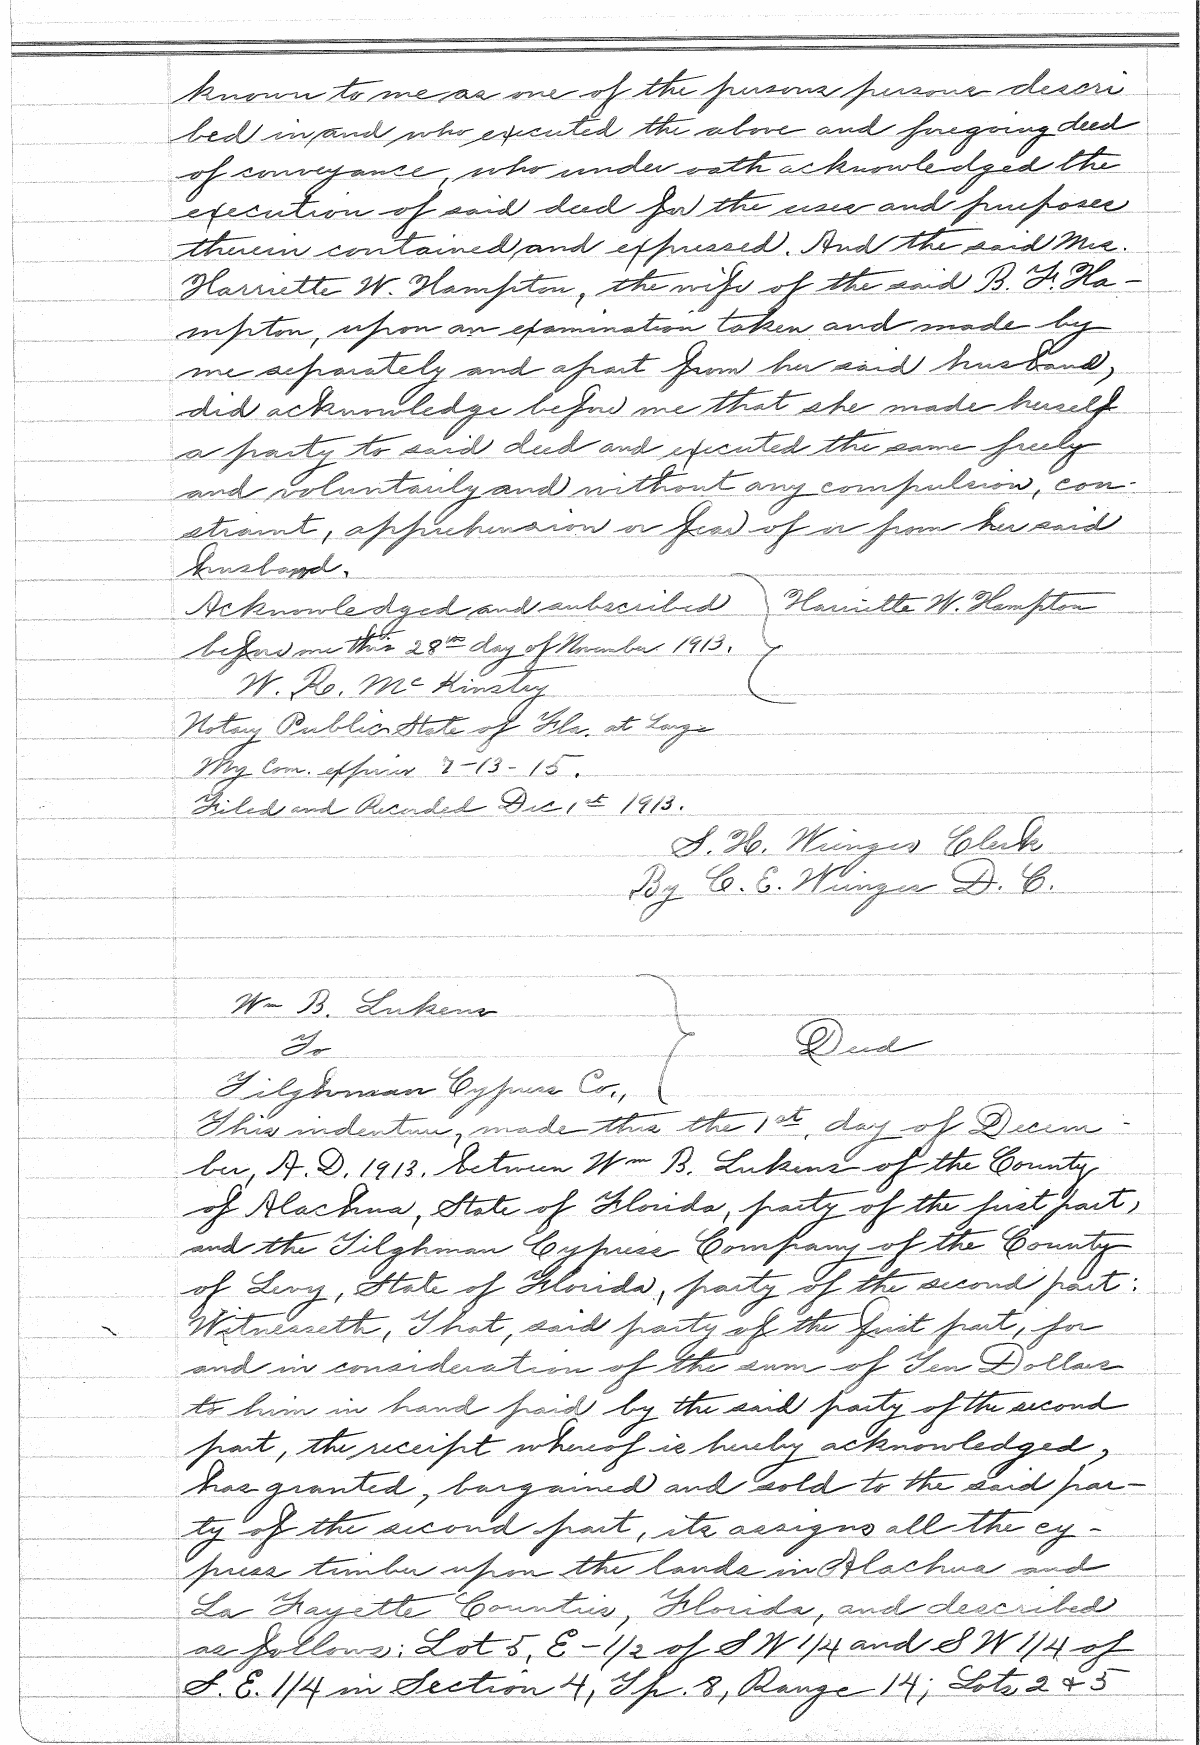 known to me as one of the persons persons descri
bed in and who executed the above and foregoing deed
of conveyance, who under oath acknowledged the
execution of said deed for the uses and purposes
therein contained and expressed. And the said Mrs.
Harriette W. Hampton, the wife of the said B. F. Ha-
mpton, upon an examination taken and made by
me separately and apart from her said husband,
did acknowledge before me that she made herself
a party to said deed and executed the same freely
and voluntarily and without any compulsion, con-
straint, apprehension or fear of or from her said
husband.
Acknowledged and subscribed } Harriette W. Hampton
before me this 28th day of November 1913.
W. R. McKinstry
Notary Public State of Fla. at Large
My Com. expires 7-13-15.
Filed and Recorded Dec. 1st 1913.
S. H. Wienges Clerk
By C. E. Wienges D. C.
Wm B. Lukens
To } Deed
Tilghman Cypress Co.,
This indenture, made this the 1st. day of Decem-
ber, A. D. 1913. between Wm B. Lukens of the County
of Alachua, State of Florida, party of the first part,
and the Tilghman Cypress Company of the County
of Levy, State of Florida, party of the second part:
Witnesseth, That, said party of the first part, for
and in consideration of the sum of Ten Dollars
to him in hand paid by the said party of the second
part, the receipt whereof is hereby acknowledged,
has granted, bargained and sold to the said par-
ty of the second part, its assigns all the cy-
press timber upon the lands in Alachua and
La Fayette Counties, Florida, and described
as follows: Lot 5, E-1/2 of S W 1/4 and S W 1/4 of
S. E. 1/4 in Section 4, Tp. 8, Range 14; Lots 2 & 5